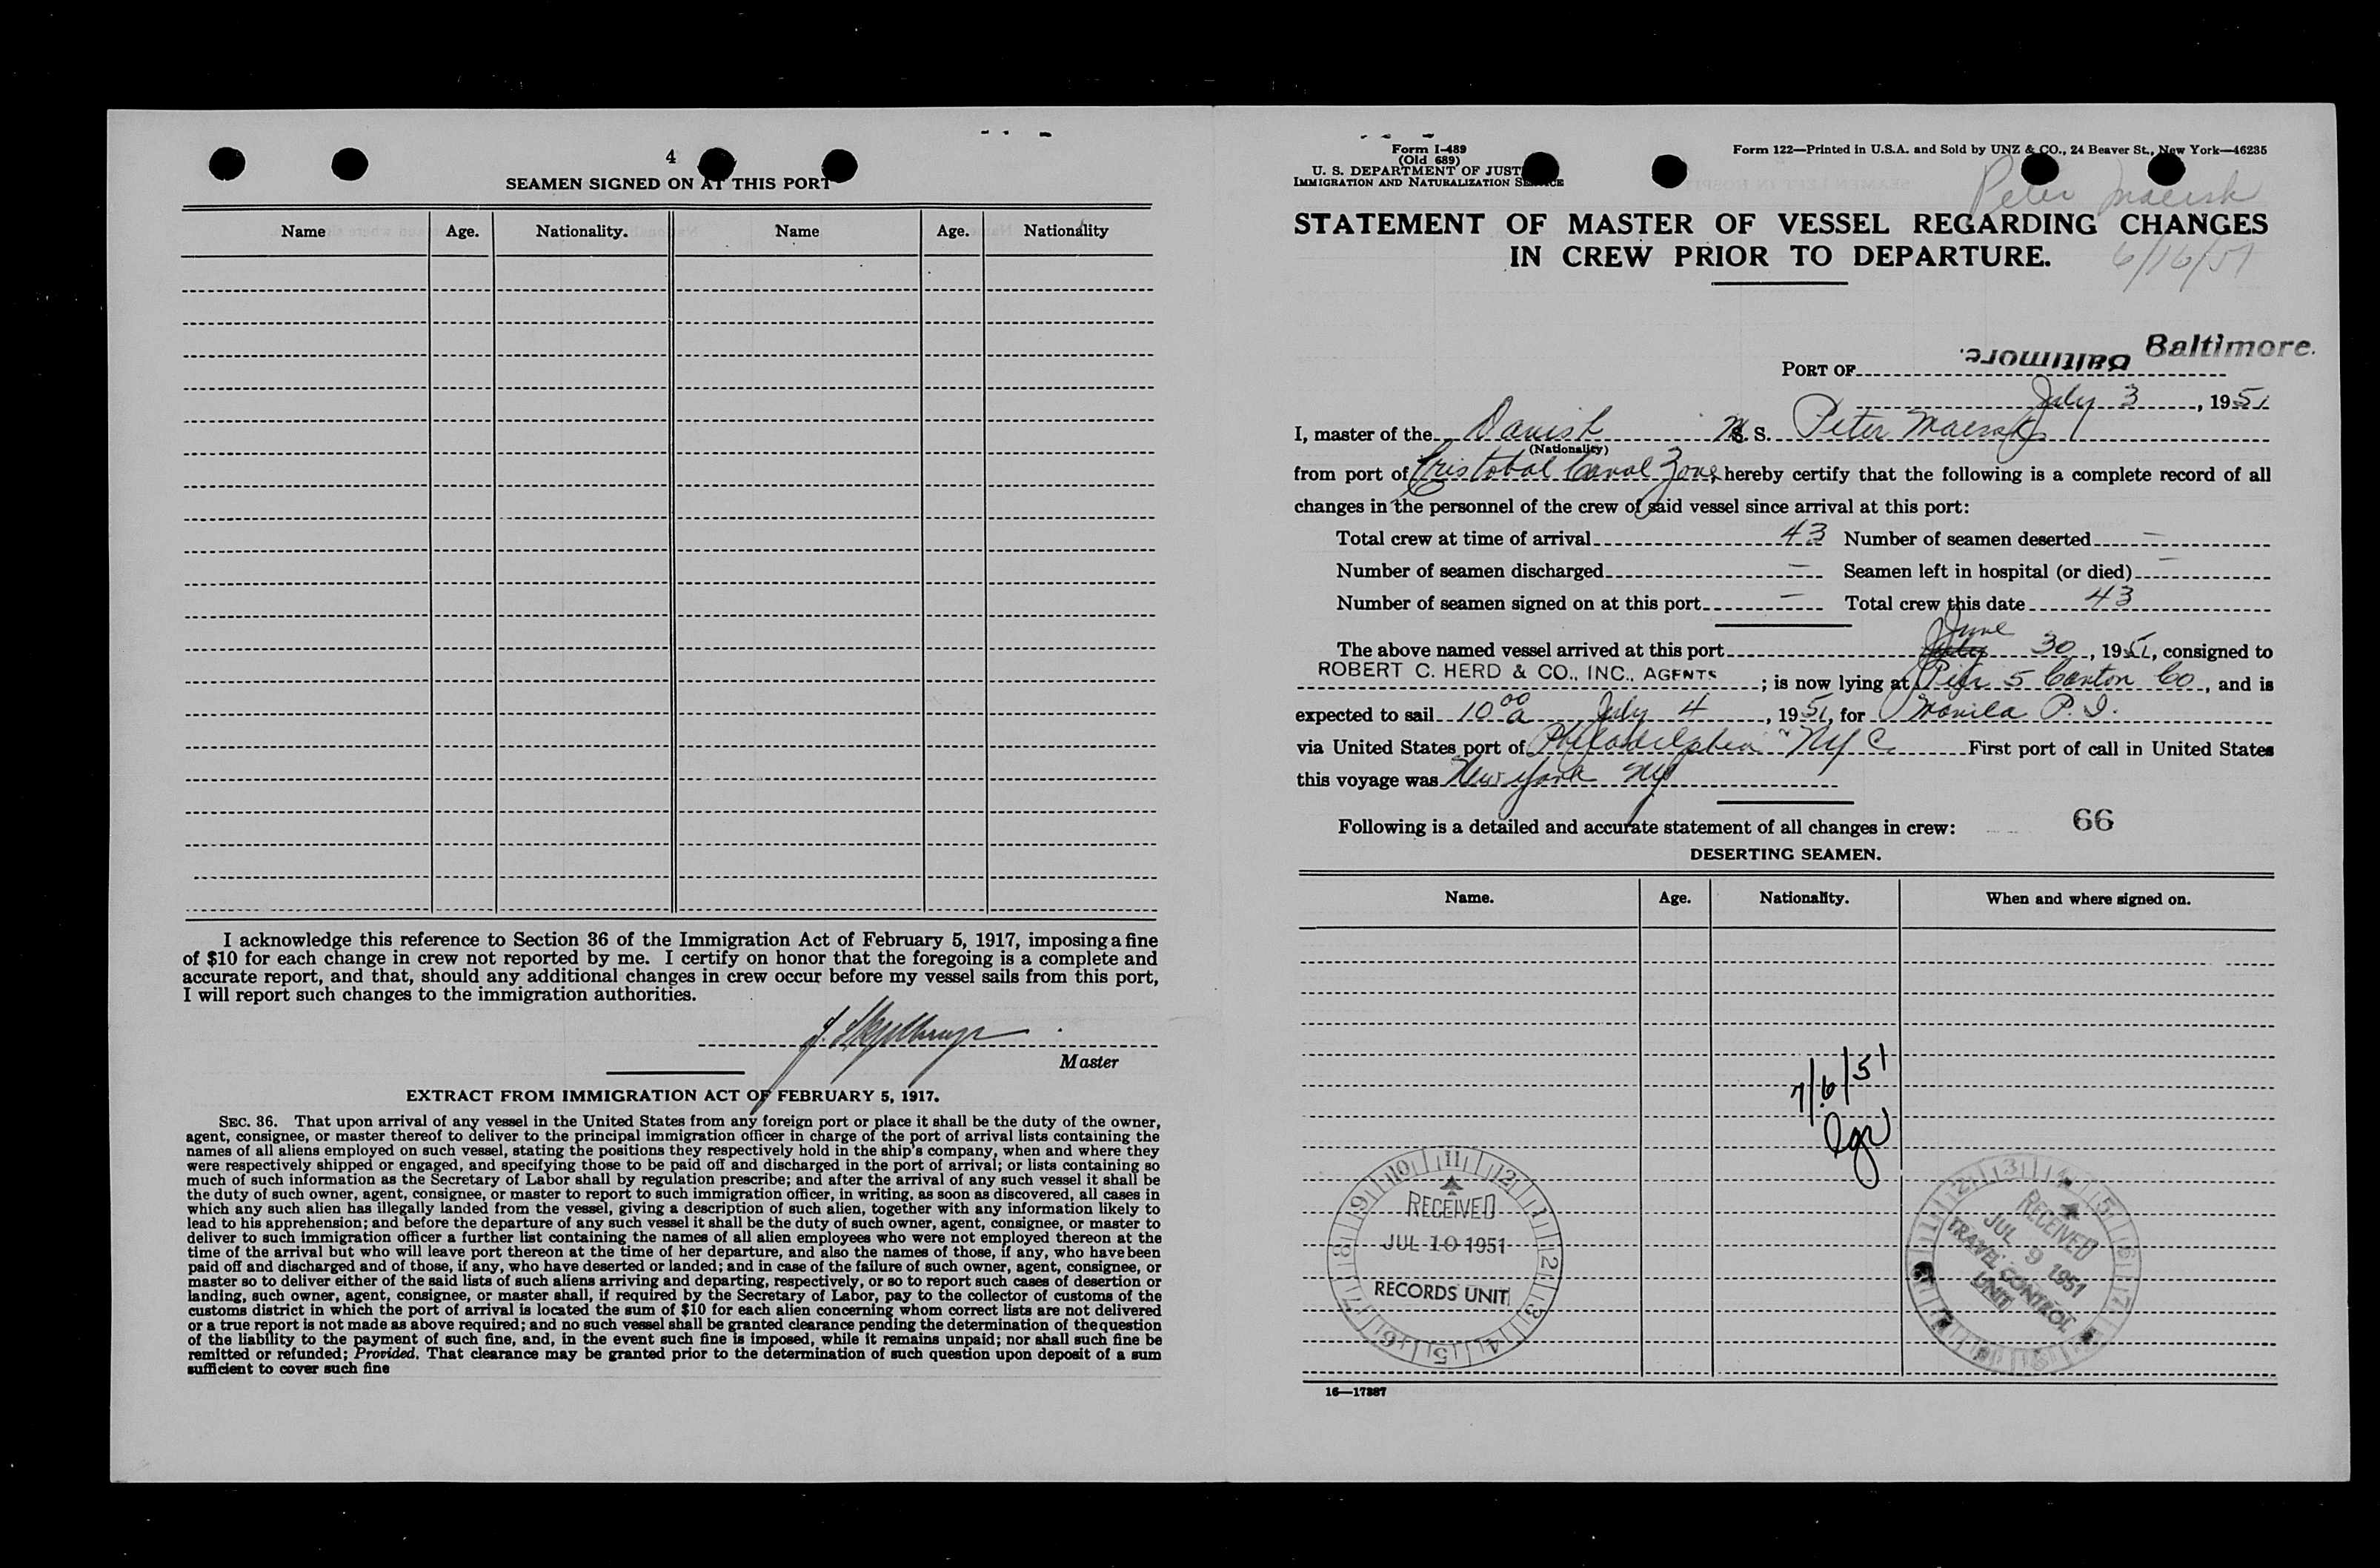 4
SEAMEN SIGNED ON AT THIS PORT
Name Age. Nationality. Name Age. Nationality
I acknowledge this reference to Section 36 of the Immigration Act of February 5, 1917, imposing a fine
of $10 for each change in crew not reported by me. I certify on honor that the foregoing is a complete and
accurate report, and that, should any additional changes in crew occur before my vessel sails from this port,
I will report such changes to the immigration authorities.
Master
EXTRACT FROM IMMIGRATION ACT OF FEBRUARY 5, 1917.
SEC. 36. That upon arrival of any vessel in the United States from any foreign port or place it shall be the duty of the owner,
agent, consignee, or master thereof to deliver to the principal immigration officer in charge of the port of arrival lists containing the
names of all aliens employed on such vessel, stating the positions they respectively hold in the ship's company, when and where they
were respectively shipped or engaged, and specifying those to be paid off and discharged in the port of arrival; or lists containing so
much of such information as the Secretary of Labor shall by regulation prescribe; and after the arrival of any such vessel it shall be
the duty of such owner, agent, consignee, or master to report to such immigration officer, in writing, as soon as discovered, all cases in
which any such alien has illegally landed from the vessel, giving a description of such alien, together with any information likely to
lead to his apprehension; and before the departure of any such vessel it shall be the duty of such owner, agent, consignee, or master to
deliver to such immigration officer a further list containing the names of all alien employees who were not employed thereon at the
time of the arrival but who will leave port thereon at the time of her departure, and also the names of those, if any, who have been
paid off and discharged and of those, if any, who have deserted or landed; and in case of the failure of such owner, agent, consignee, or
master so to deliver either of the said lists of such aliens arriving and departing, respectively, or so to report such cases of desertion or
landing, such owner, agent, consignee, or master shall, if required by the Secretary of Labor, pay to the collector of customs of the
customs district in which the port of arrival is located the sum of $10 for each alien concerning whom correct lists are not delivered
or a true report is not made as above required; and no such vessel shall be granted clearance pending the determination of the question
of the liability to the payment of such fine, and, in the event such fine is imposed, while it remains unpaid; nor shall such fine be
remitted or refunded; Provided, That clearance may be granted prior to the determination of such question upon deposit of a sum
sufficient to cover such fine
Form I-489
(Old 689)
U. S. DEPARTMENT OF JUST
IMMIGRATION AND NATURALIZATION SERVICE
Form 122—Printed in U.S.A. and Sold by UNZ & CO., 24 Beaver St., New York—46235
Peter Maersk
STATEMENT OF MASTER OF VESSEL REGARDING CHANGES
IN CREW PRIOR TO DEPARTURE.
6/16/51
PORT OF Baltimore. Baltimore.
July 3, 1951
I, master of the Danish M. S. Peter Maersk
(Nationality)
from port of Cristobal Canal Zone, hereby certify that the following is a complete record of all
changes in the personnel of the crew of said vessel since arrival at this port:
Total crew at time of arrival 43 Number of seamen deserted —
Number of seamen discharged — Seamen left in hospital (or died) —
Number of seamen signed on at this port — Total crew this date 43
June
The above named vessel arrived at this port July 30, 1951, consigned to
ROBERT C. HERD & CO., INC., AGENTS; is now lying at Pier 5 Canton Co, and is
expected to sail 10 00 a July 4, 1951, for Manila P. I.
via United States port of Philadelphia NYC First port of call in United States
this voyage was New York NY
Following is a detailed and accurate statement of all changes in crew: 66
DESERTING SEAMEN.
Name. Age. Nationality. When and where signed on.
7/6/51
RECEIVED
JUL 10 1951
RECORDS UNIT
RECEIVED
JUL 9 1951
TRAVEL CONTROL
UNIT
16—17887